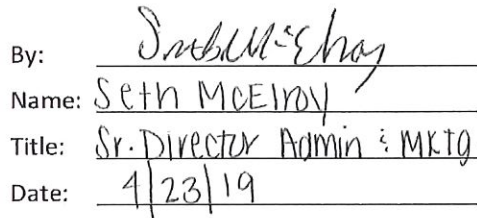 By:
Name: Seth McElroy
Title: Sr. Director Admin & MKTG
Date: 4/23/19